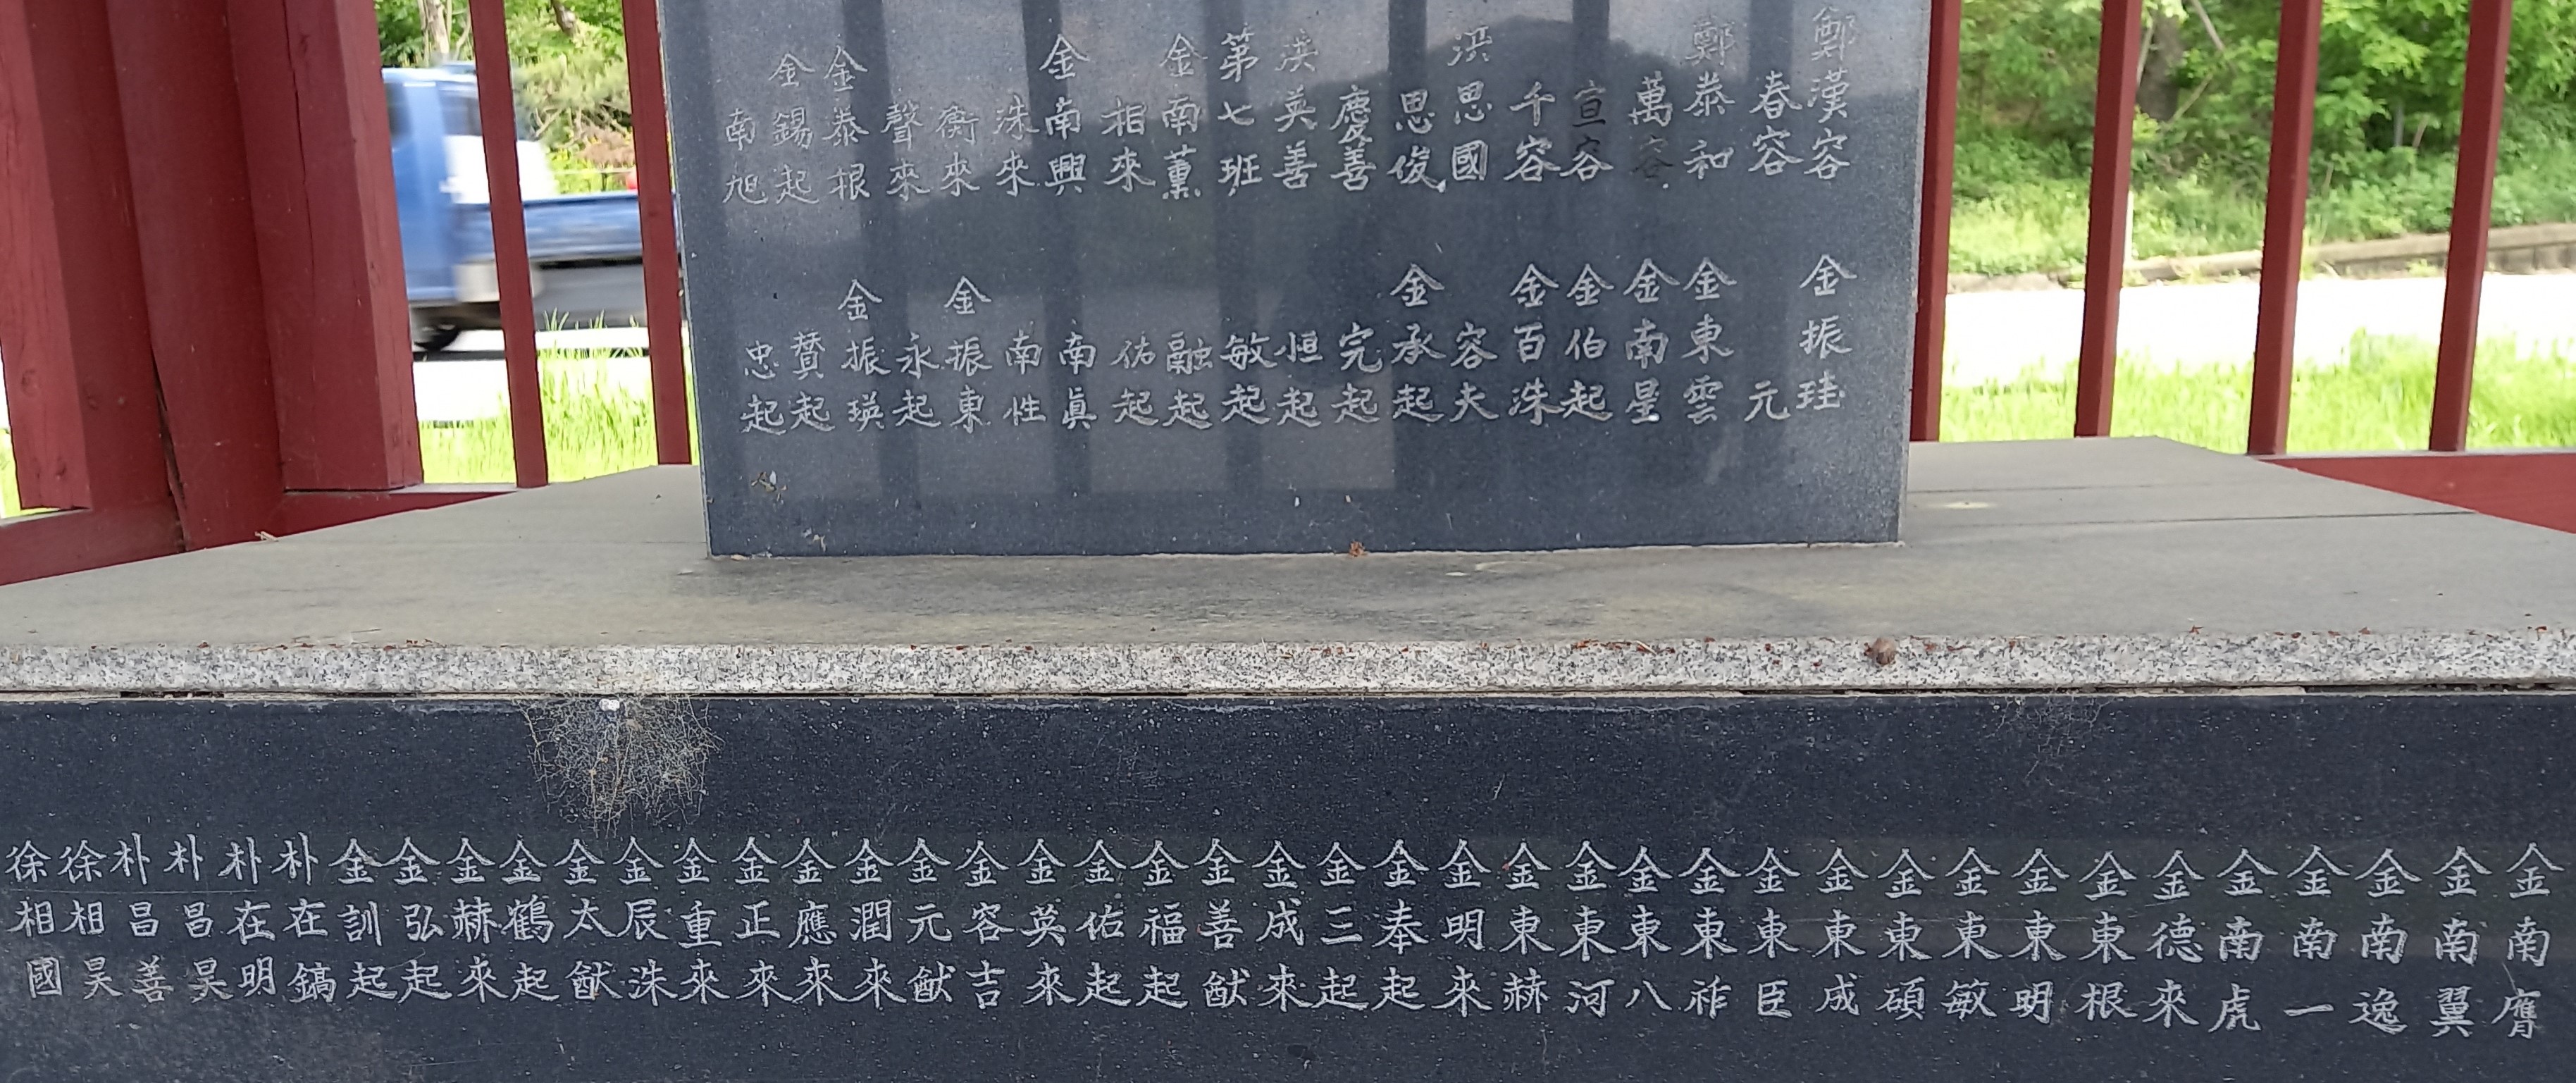 鄭漢容
春容
鄭泰和
萬容
宣容
千容
洪思國
思俊
慶善
洪英善
第七班
金南薰
相來
金南興
洙來
衡來
聲來
金泰根
金錫起
南旭
金振珪
元
金東雲
金南星
金伯起
金百洙
容夫
金承起
完起
恒起
敏起
融起
佑起
南眞
南性
金振東
永起
金振瑛
贊起
忠起
金南膺
金南翼
金南逸
金南一
金南虎
金德來
金東根
金東明
金東敏
金東碩
金東成
金東臣
金東祚
金東八
金東河
金東赫
金明來
金奉起
金三起
金成來
金善猷
金福起
金佑起
金英來
金容吉
金元猷
金潤來
金應來
金正來
金重來
金辰洙
金太猷
金鶴起
金赫來
金弘起
金訓起
朴在鎬
朴在明
朴昌昊
朴昌善
徐相昊
徐相國